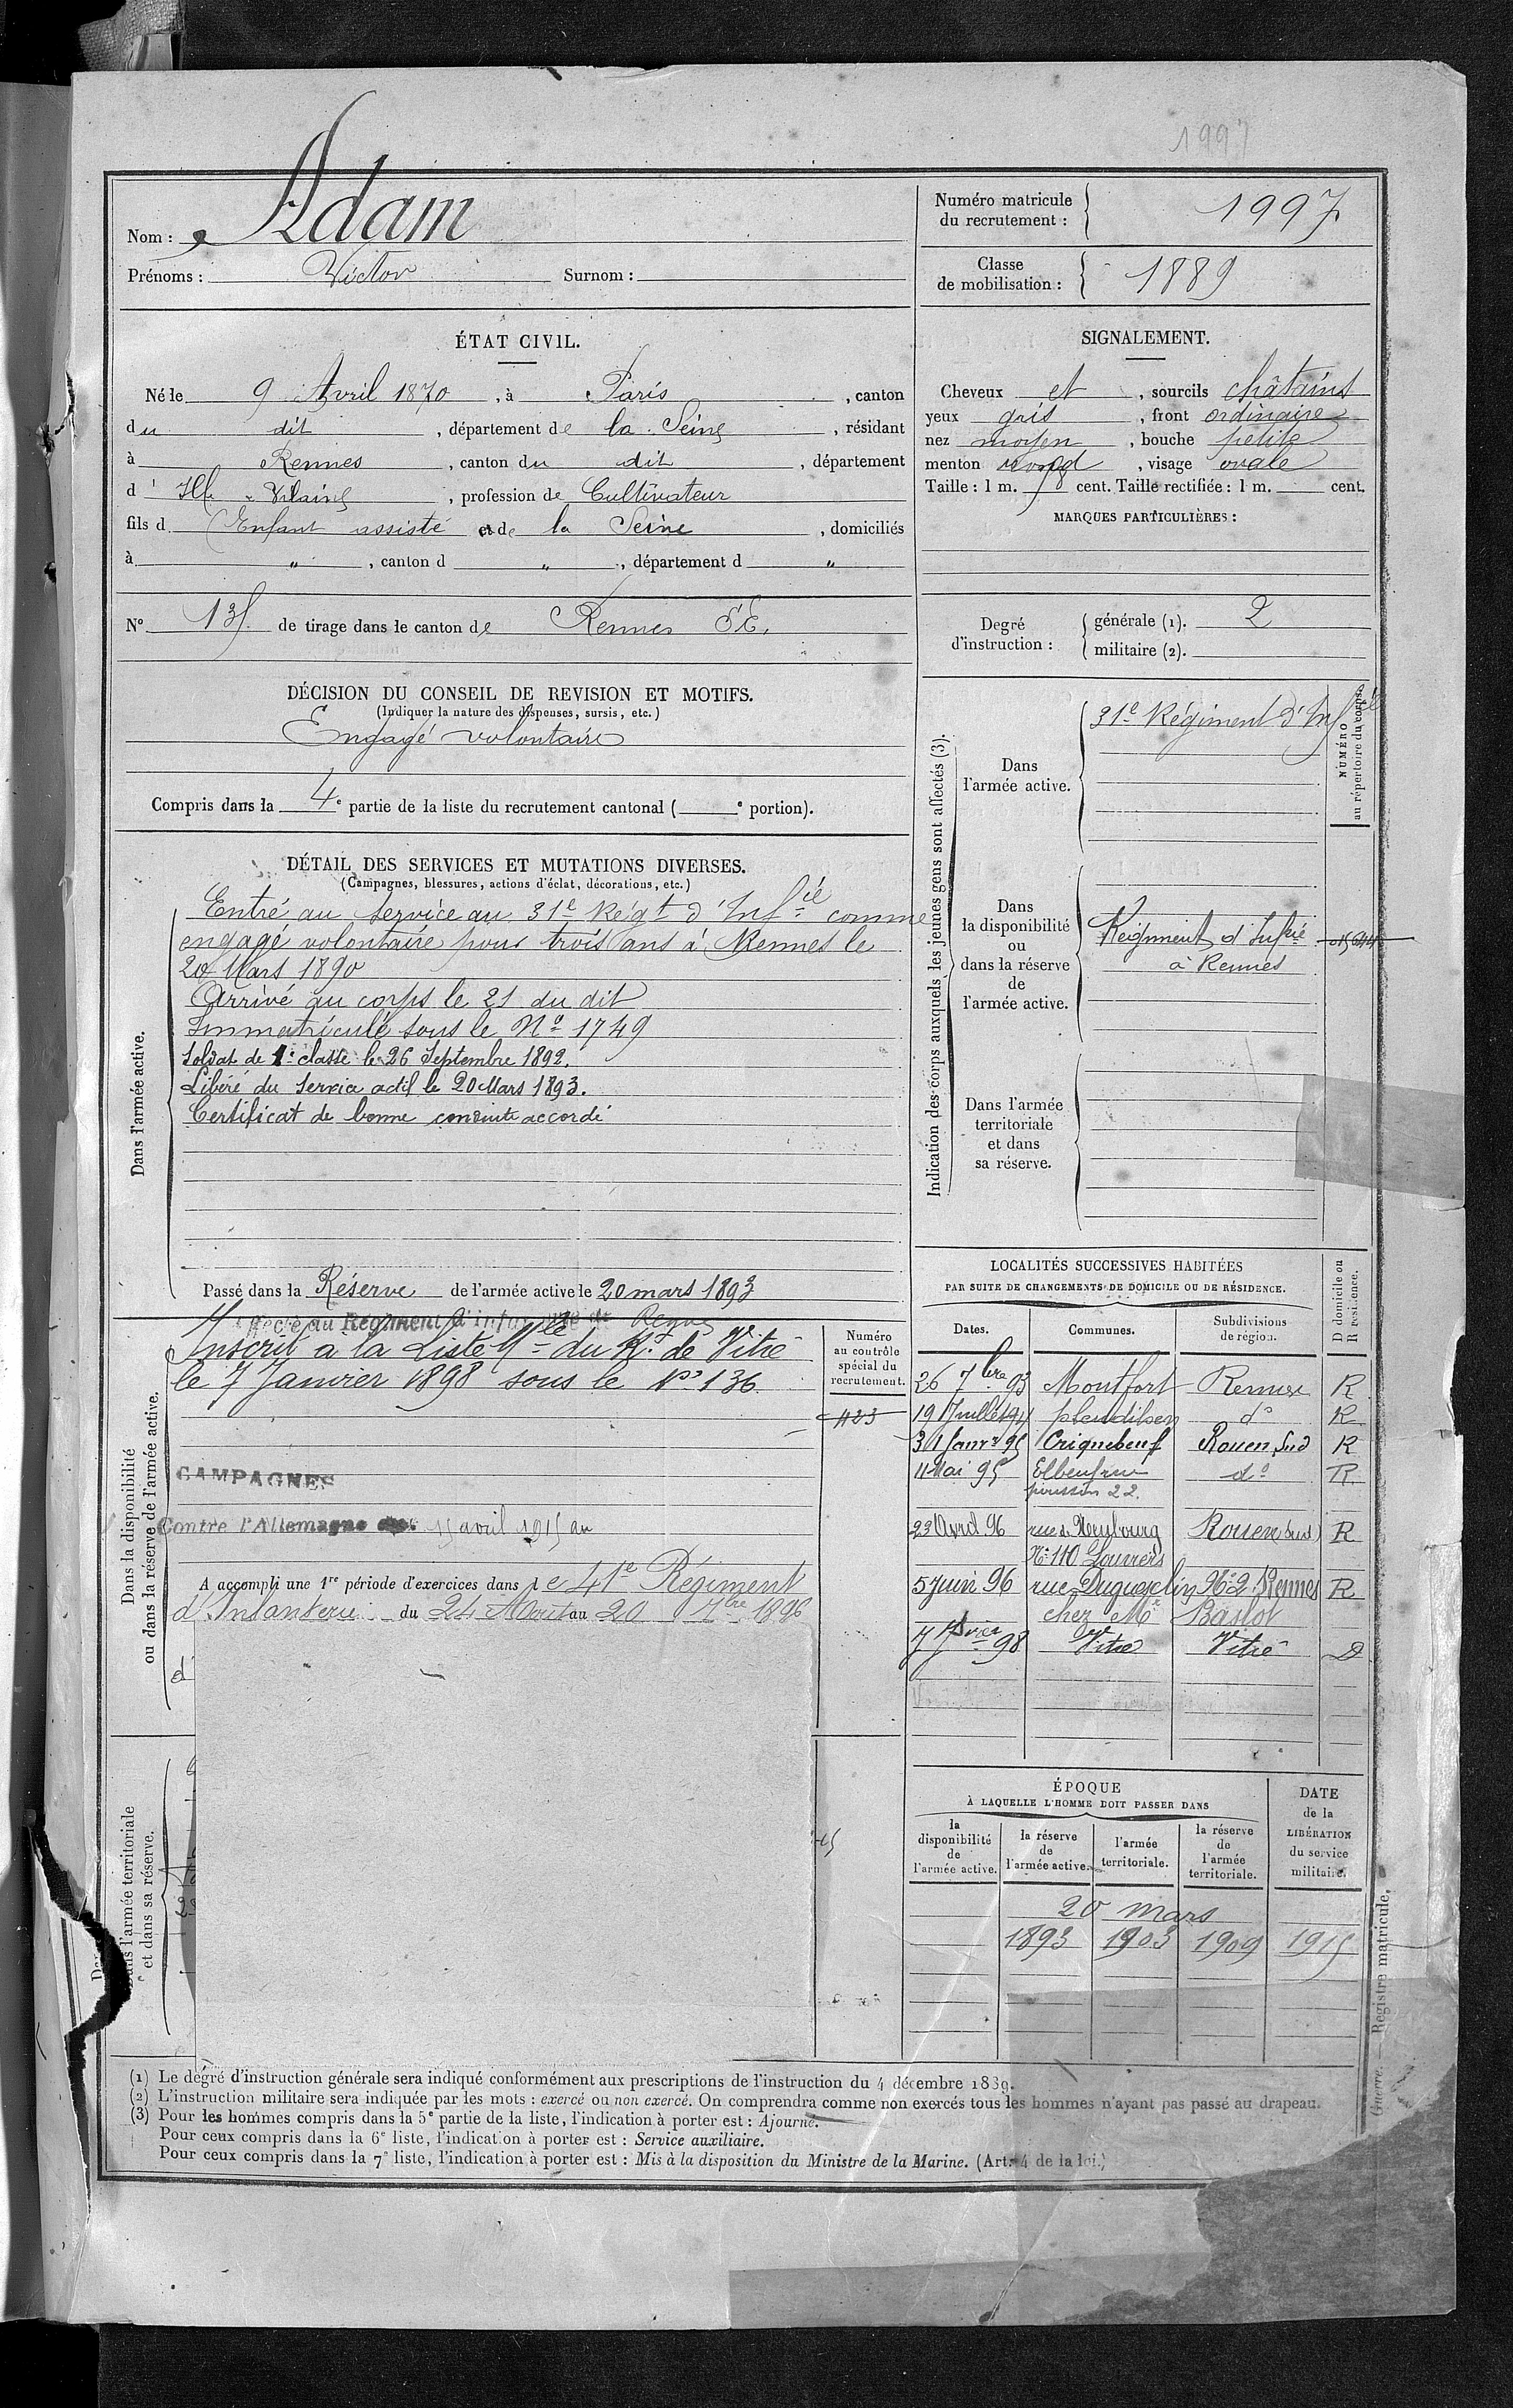 1997
Nom : Adam
Prénoms : Victor Surnom :
Numéro matricule du recrutement : 1997
Classe de mobilisation : 1889
ÉTAT CIVIL.
Né le 9 Avril 1870, à Paris, canton
du dit, département de la Seine, résidant
à Rennes, canton du dit, département
d' Ille & Vilaine, profession de Cultivateur
fils d Enfant assisté et de la Seine, domiciliés
à " , canton d " , département d "
N° de tirage dans le canton de Rennes S.E.
DÉCISION DU CONSEIL DE REVISION ET MOTIFS.
(Indiquer la nature des dispenses, sursis, etc.)
Engagé volontaire
Compris dans la 4e partie de la liste du recrutement cantonal ( e portion).
SIGNALEMENT.
Cheveux et , sourcils châtains
yeux gris , front ordinaire
nez moyen , bouche petite
menton rond , visage ovale
Taille : 1 m. 58 cent. Taille rectifiée : 1 m. cent.
MARQUES PARTICULIÈRES :
Degré d'instruction :
générale (1). 2
militaire (2).
Indication des corps auxquels les jeunes gens sont affectés (3).
NUMÉRO au répertoire du corps.
Dans l'armée active.
31e Régiment d'Inf
Dans la disponibilité ou dans la réserve de l'armée active.
Régiment d'Infrie
à Rennes
Dans l'armée territoriale et dans sa réserve.
DÉTAIL DES SERVICES ET MUTATIONS DIVERSES.
(Campagnes, blessures, actions d'éclat, décorations, etc.)
Dans l'armée active.
Entré au service au 31e Régt d'Infie comme
engagé volontaire pour trois ans à Rennes le
20 Mars 1890
Arrivé au corps le 21 du dit
Immatriculé sous le No 1749
Soldat de 1e classe le 26 Septembre 1892.
Libéré du Service actif le 20 Mars 1893.
Certificat de bonne conduite accordé
Passé dans la Réserve de l'armée active le 20 mars 1893
Dans la disponibilité ou dans la réserve de l'armée active.
Affecté au Régiment d'infanterie de Rennes
Inscrit à la Liste Mle du Rt de Vitré
le 7 Janvier 1898 sous le No 136
Numéro au contrôle spécial du recrutement.
423
CAMPAGNES
Contre l'Allemagne 15 avril 1915 au
A accompli une 1re période d'exercices dans le 41e Régiment
d'Infanterie du 24 Aout au 20 7bre 1896
d'
Dans l'armée territoriale et dans sa réserve.
LOCALITÉS SUCCESSIVES HABITÉES
PAR SUITE DE CHANGEMENTS DE DOMICILE OU DE RÉSIDENCE.
D domicile ou R résidence.
Dates. Communes. Subdivisions de région.
26 7bre 93 Montfort Rennes R
19 Juillet 94 pleudihen do R
31 Janvr 95 Criquebeuf Rouen Sud R
11 Mai 95 Elbeuf rue do R
22.
23 Avril 96 rue du Neubourg Rouen (Sud) R
No 110 Louviers
5 Juin 96 rue Duguesclin No 2 Rennes R
chez Mr Baslot
7 Jvier 98 Vitré Vitré D
ÉPOQUE
À LAQUELLE L'HOMME DOIT PASSER DANS
la disponibilité de l'armée active.
la réserve de l'armée active.
l'armée territoriale.
la réserve de l'armée territoriale.
DATE de la LIBÉRATION du service militaire.
20 mars
1893 1903 1909 1915
(1) Le degré d'instruction générale sera indiqué conformément aux prescriptions de l'instruction du 4 décembre 1889.
(2) L'instruction militaire sera indiquée par les mots : exercé ou non exercé. On comprendra comme non exercés tous les hommes n'ayant pas passé au drapeau.
(3) Pour les hommes compris dans la 5e partie de la liste, l'indication à porter est : Ajourné.
Pour ceux compris dans la 6e liste, l'indication à porter est : Service auxiliaire.
Pour ceux compris dans la 7e liste, l'indication à porter est : Mis à la disposition du Ministre de la Marine. (Art. 4 de la loi.)
Guerre. — Registre matricule.